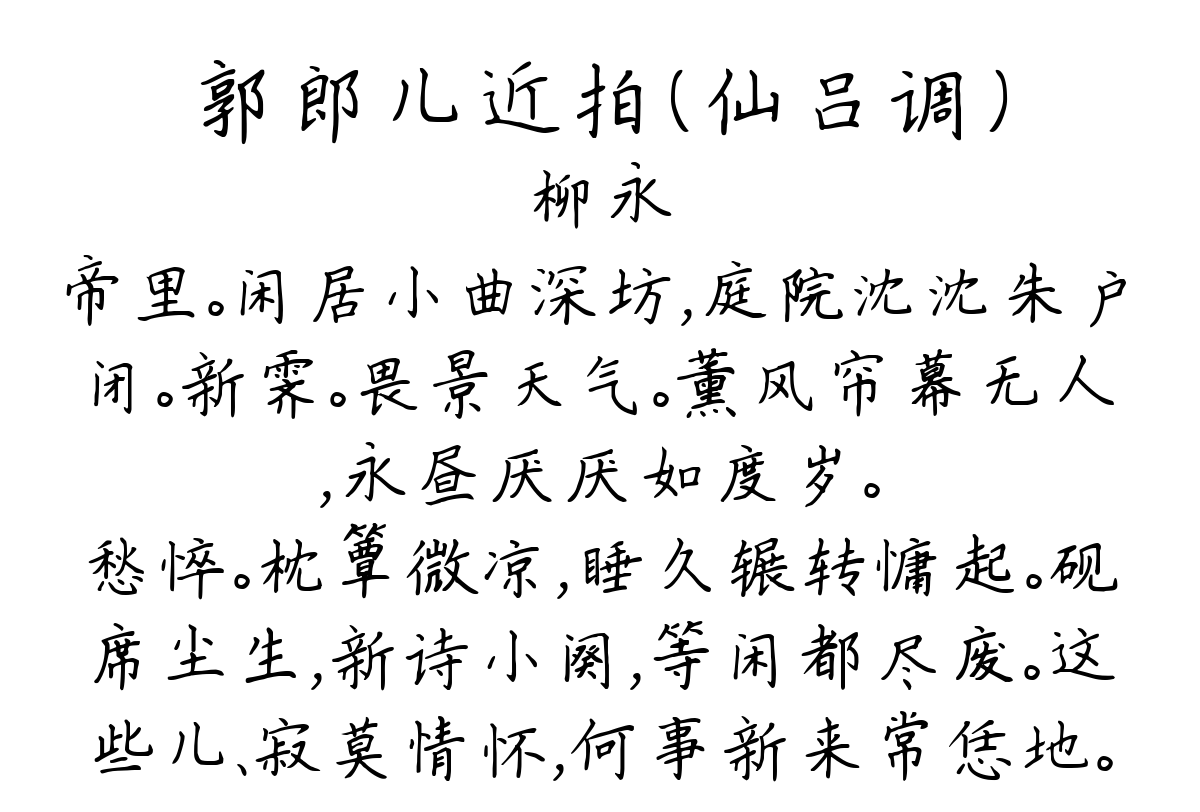 郭郎儿近拍(仙吕调)
柳永
帝里。闲居小曲深坊,庭院沈沈朱户
闭。新霁。畏景天气。薰风帘幕无人
,永昼厌厌如度岁。
愁悴。枕簟微凉,睡久辗转慵起。砚
席尘生,新诗小阕,等闲都尽废。这
些儿、寂莫情怀,何事新来常恁地。